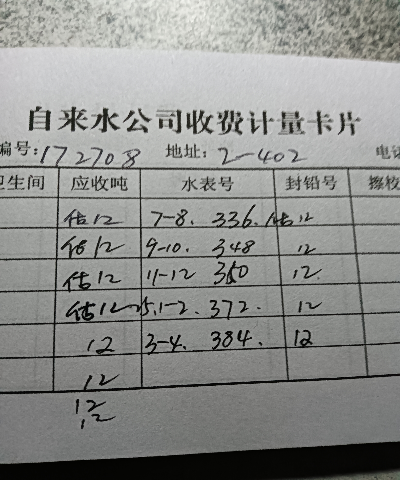 自来水公司收费计量卡片
编号:172708 地址:2-402 电话
卫生间 应收吨 水表号 封铅号 擦校
估12 7-8. 336. 估12
估12 9-10. 348 12
估12 11-12 360 12.
估12 25.1-2. 372. 12
12 3-4. 384. 12
12
12
12